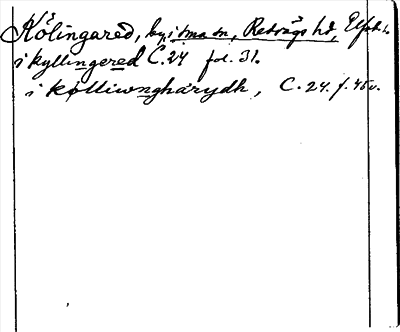 Kölingared, by i sma sn, Redvägs hd, Elfsb. l.
i kyllingered C. 24 fol. 31.
i kølliwngharydh, C. 24. f. 45 v.